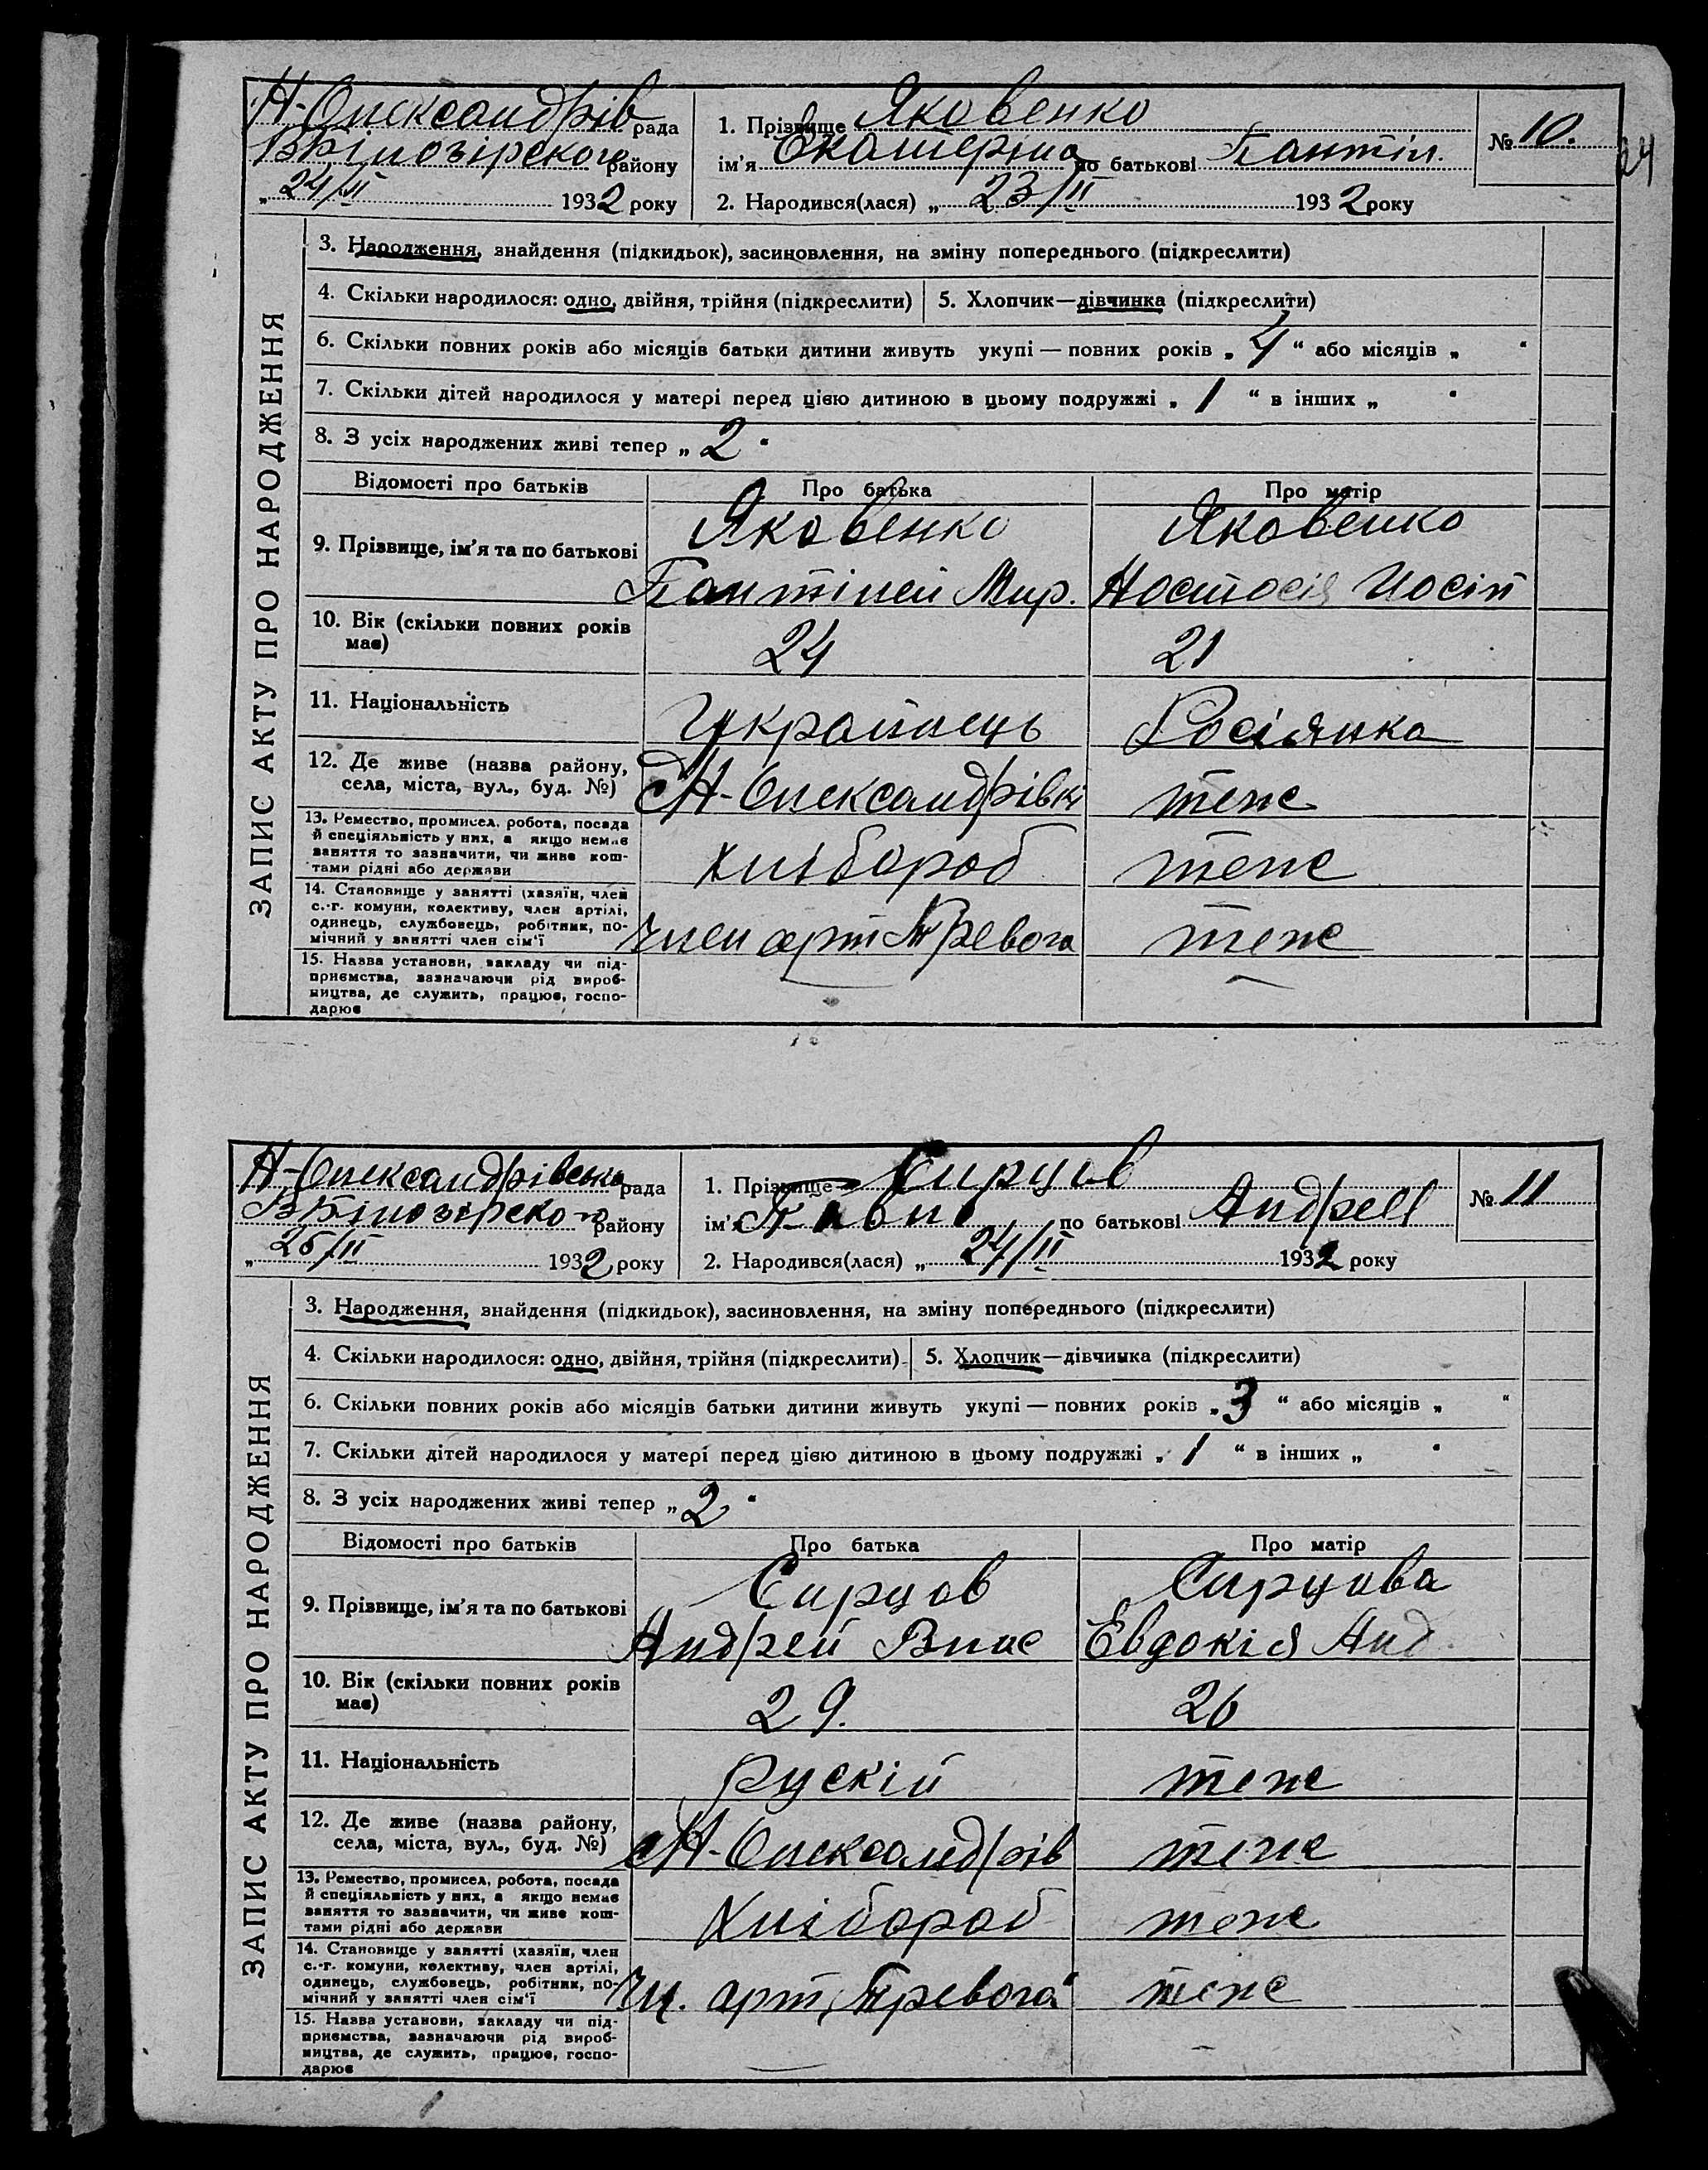 Н-Олександрів рада
ВБілозірского району
„ 24/II 1932 року
1. Прізвище Яковенко
ім'я Екатеріна по батькові Пантіл.
2. Народився(лася) „ 23/II 1932 року
№ 10.
24
ЗАПИС АКТУ ПРО НАРОДЖЕННЯ
3. Народження, знайдення (підкидьок), засиновлення, на зміну попереднього (підкреслити)
4. Скільки народилося: одно, двійня, трійня (підкреслити) 5. Хлопчик—дівчинка (підкреслити)
6. Скільки повних років або місяців батьки дитини живуть укупі — повних років „ 4 “ або місяців „ “
7. Скільки дітей народилося у матері перед цією дитиною в цьому подружжі „ 1 “ в інших „ “
8. З усіх народжених живі тепер „ 2 “
Відомості про батьків Про батька Про матір
9. Прізвище, ім'я та по батькові
Яковенко Яковенко
Пантілей Мир. Настасія Иосіп
10. Вік (скільки повних років
має)
24 21
11. Національність
Українець Росіянка
12. Де живе (назва району,
села, міста, вул., буд. №)
с Н-Олександрівкі теже
13. Ремество, промисел, робота, посада
й спеціяльність у них, а якщо немає
заняття то зазначити, чи живе кош-
тами рідні або держави
хлібороб теже
14. Становище у занятті (хазяїн, член
с.-г. комуни, колективу, член артілі,
одинець, службовець, робітник, по-
мічний у занятті член сім'ї
член арт Тревога теже
15. Назва установи, закладу чи під-
приємства, зазначаючи рід вироб-
ництва, де служить, працює, госпо-
дарює
Н-Олександрівська рада
ВБілозірского району
„ 26/II 1932 року
1. Прізвище Сирцов
ім'я по батькові Андрей
2. Народився(лася) „ 24/II 1932 року
№ 11
ЗАПИС АКТУ ПРО НАРОДЖЕННЯ
3. Народження, знайдення (підкидьок), засиновлення, на зміну попереднього (підкреслити)
4. Скільки народилося: одно, двійня, трійня (підкреслити) 5. Хлопчик—дівчинка (підкреслити)
6. Скільки повних років або місяців батьки дитини живуть укупі — повних років „ 3 “ або місяців „ “
7. Скільки дітей народилося у матері перед цією дитиною в цьому подружжі „ 1 “ в інших „ “
8. З усіх народжених живі тепер „ 2 “
Відомості про батьків Про батька Про матір
9. Прізвище, ім'я та по батькові
Сирцов Сирцова
Андрей Влас Евдокія Анд
10. Вік (скільки повних років
має)
29. 26
11. Національність
рускій теже
12. Де живе (назва району,
села, міста, вул., буд. №)
с Н-Олександрів теже
13. Ремество, промисел, робота, посада
й спеціяльність у них, а якщо немає
заняття то зазначити, чи живе кош-
тами рідні або держави
Хлібороб теже
14. Становище у занятті (хазяїн, член
с.-г. комуни, колективу, член артілі,
одинець, службовець, робітник, по-
мічний у занятті член сім'ї
Чл. арт „Тревога“ теже
15. Назва установи, закладу чи під-
приємства, зазначаючи рід вироб-
ництва, де служить, працює, госпо-
дарює